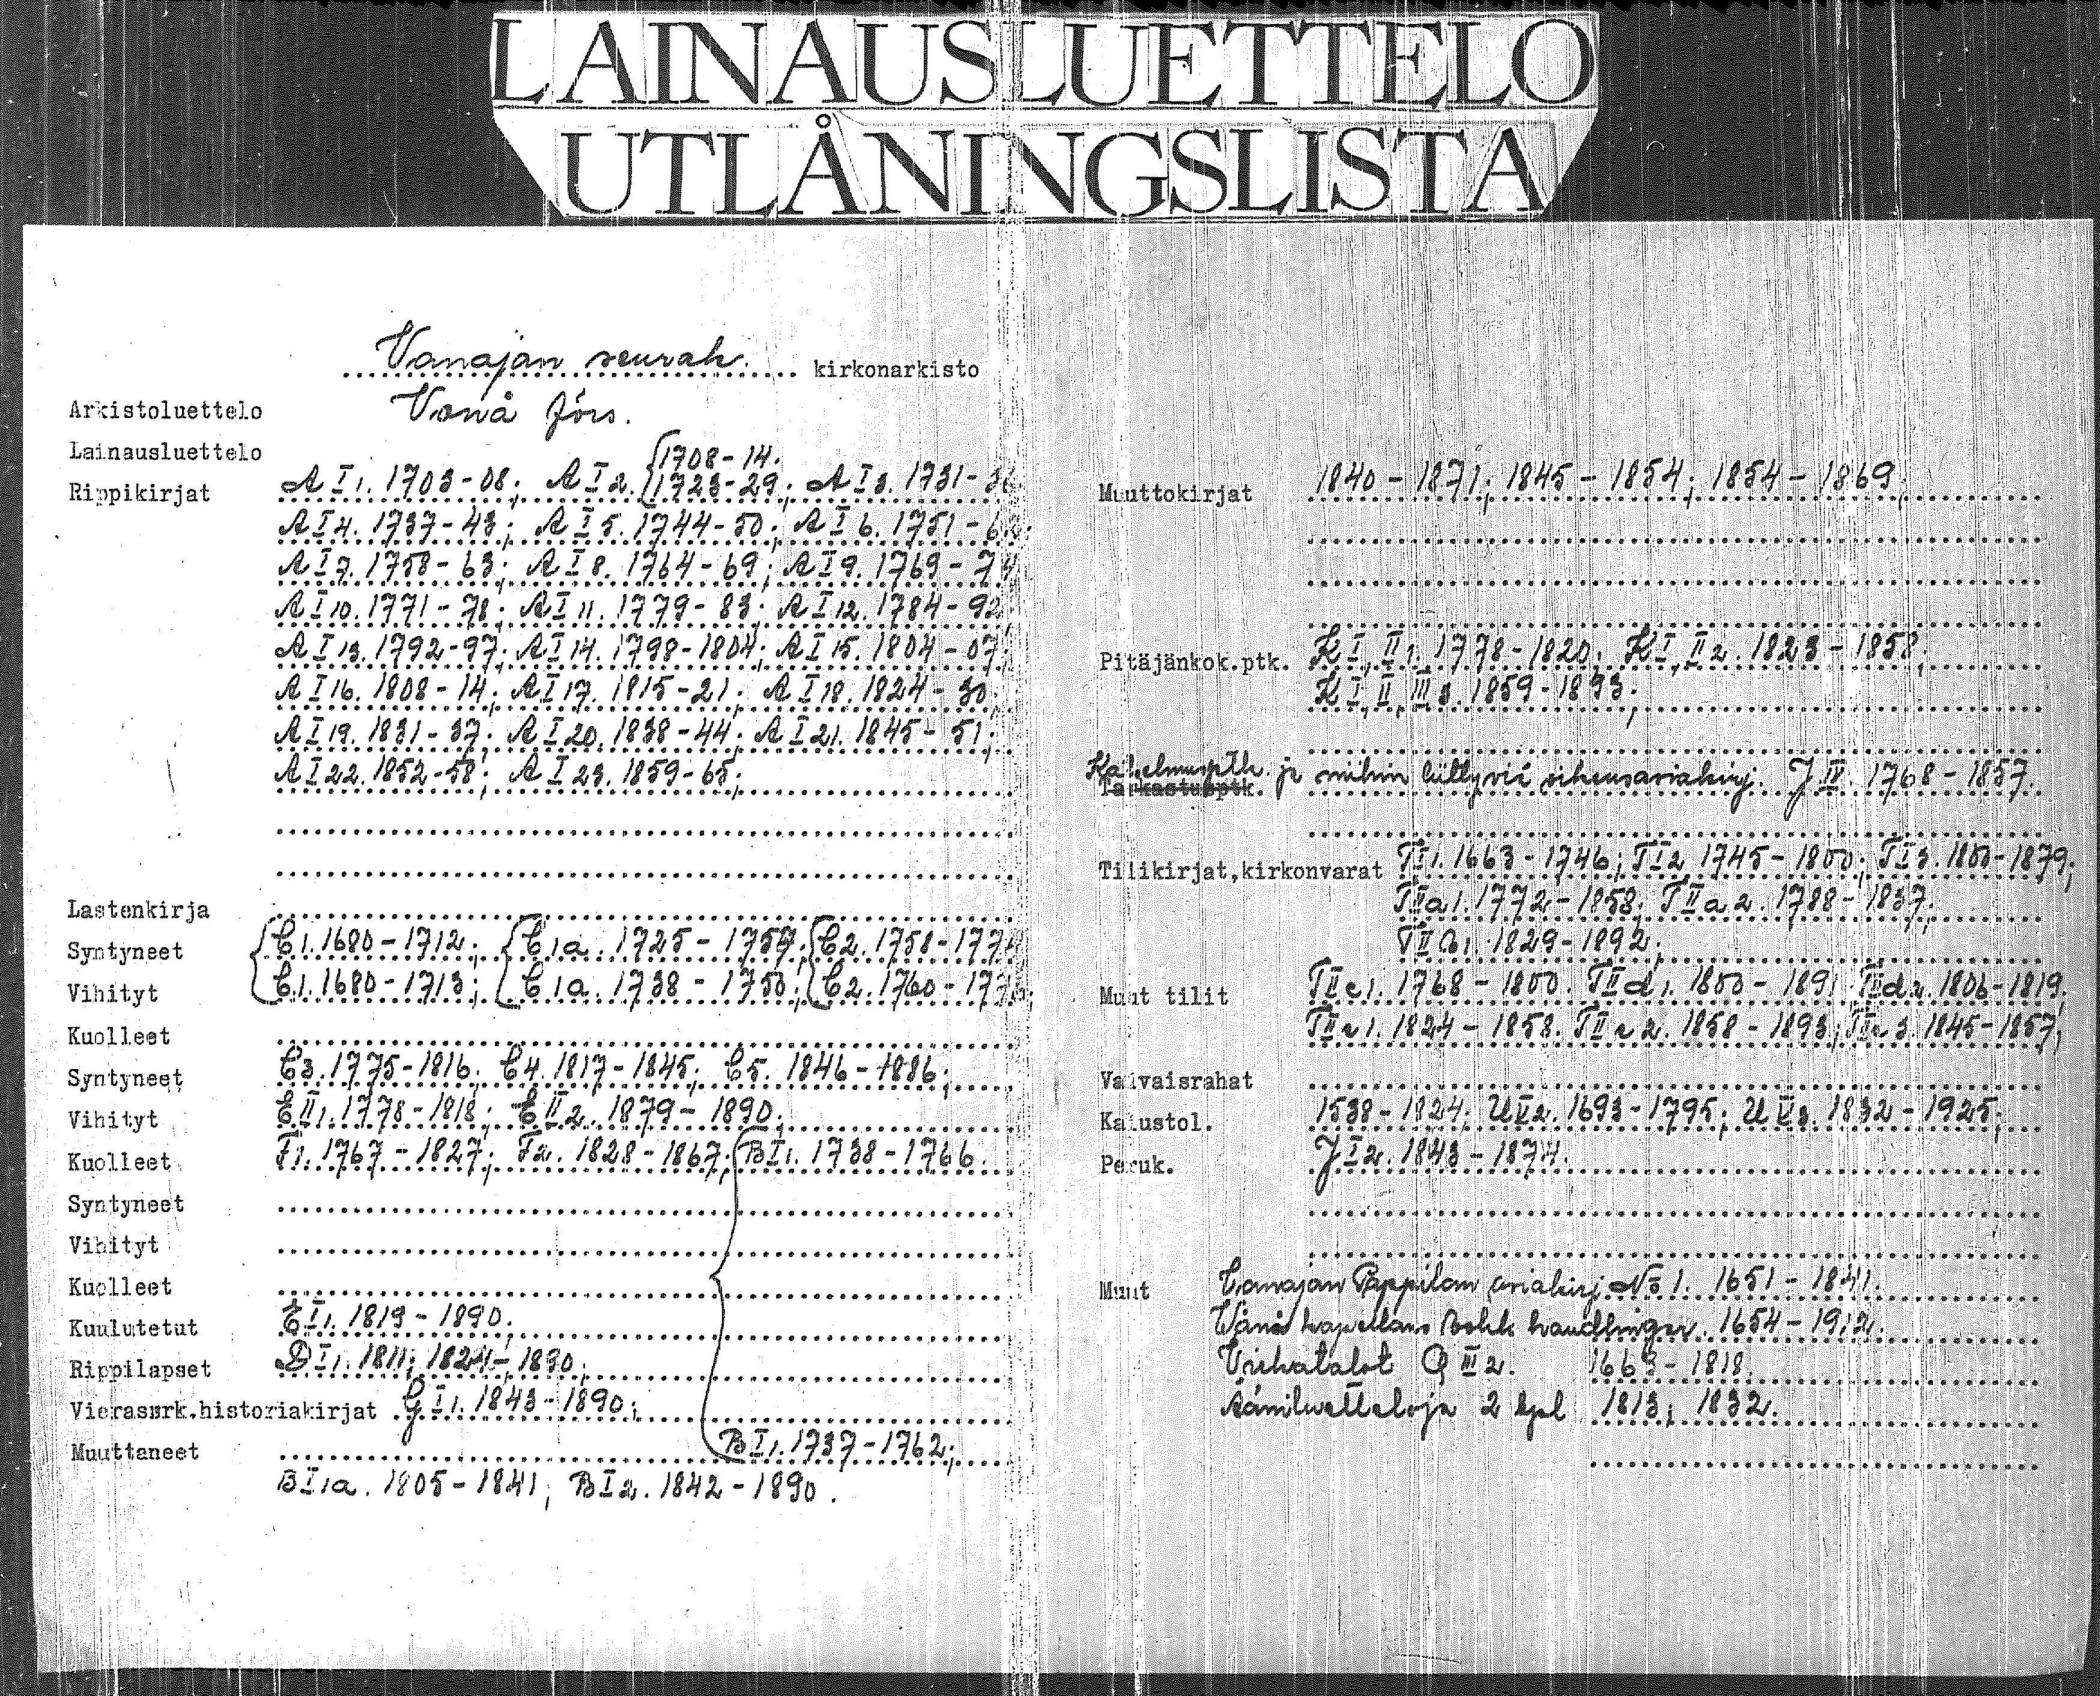 LAINAUSLUETTELO
UTLÅNINGSLISTA
Vanajan seurak. kirkonarkisto
Arkistoluettelo Vanå förs.
Lainausluettelo
Rippikirjat A I 1. 1703-08; A I 2. {1708-14. 1723-29; A I 3. 1731-36
A I 4. 1737-43; A I 5. 1744-50; A I 6. 1751-
A I 7. 1758-63; A I 8. 1764-69; A I 9. 1769-74
A I 10. 1771-78; A I 11. 1779-83; A I 12. 1784-92
A I 13. 1792-97; A I 14. 1798-1804; A I 15. 1804-07;
A I 16. 1808-14; A I 17. 1815-21; A I 18. 1824-30;
A I 19. 1831-37; A I 20. 1838-44; A I 21. 1845-51;
A I 22. 1852-58; A I 23. 1859-65;
Lastenkirja
Syntyneet C 1. 1680-1712; C 1a. 1725-1757; C 2. 1758-1774
Vihityt C 1. 1680-1713; C 1a. 1738-1750; C 2. 1760-
Kuolleet
Syntyneet C 3. 1775-1816; C 4. 1817-1845; C 5. 1846-1886;
Vihityt E II 1. 1778-1818; E II 2. 1879-1890;
Kuolleet F 1. 1767-1827; F 2. 1828-1867; {B I 1. 1738-1766.
Syntyneet
Vihityt
Kuolleet
Kuulutetut E I 1. 1819-1890;
Rippilapset D I 1. 1811; 1824-1890;
Vierassrk.historiakirjat G I 1. 1843-1890;
Muuttaneet B I 1. 1737-1762;
B I 1a. 1805-1841; B I 2. 1842-1890.
Muuttokirjat 1840-1871; 1845-1854; 1854-1869;
Pitäjänkok.ptk. K I, II 1. 1778-1820; K I, II 2. 1823-1858;
K I, II, III 3. 1859-1893;
Katselmusptk. ja niihin liittyviä oikeusasiakirj. J IV. 1768-1857.
Tarkastusptk.
Tilikirjat,kirkonvarat T I 1. 1663-1746; T I 2. 1745-1800; T I 3. 1800-1879;
T II a 1. 1772-1858; T II a 2. 1788-1837;
T II b 1. 1829-1892;
Muut tilit T II c 1. 1768-1800. T II d 1. 1800-1891 T II d 2. 1806-1819.
T II e 1. 1824-1858. T II e 2. 1858-1893; T II e 3. 1845-1857;
Vaivaisrahat
Kalustol. 1538-1824; U V 2. 1693-1795; U V 3. 1832-1925;
Peruk. J I 2. 1843-1874.
Muut Vanajan Pappilan asiakirj No 1. 1651-1841.
Wånå kapellans bohls handlingar. 1654-1912.
Virkatalot Q III 2. 1663-1818.
Ääniluetteloja 2 kpl 1813; 1832.